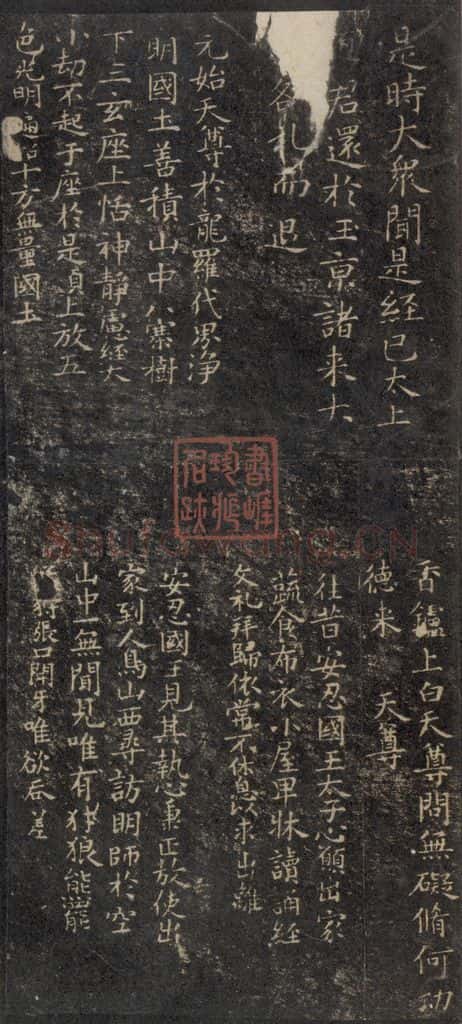 是時大衆聞是經已太上
君還於玉京諸來大
各礼而退
元始天尊於龍羅代界淨
明國土善積山中八騫樹
下三玄座上恬神靜慮經六
小劫不起于座於是貞上放五
色光明遍十方無量國土
香鑪上白天尊問無礙脩何功
德来 天尊
往昔安忍國王太子心願出家
蔬食布衣小屋卑牀讀誦經
文礼拜歸依常不休息以求出離
安忍國王見其執心秉正放使出
家到人鳥山西尋訪明師於空
山中一無聞見唯有犲狼熊羆
張口開牙唯欲吞
書雖
Shufawang.CN